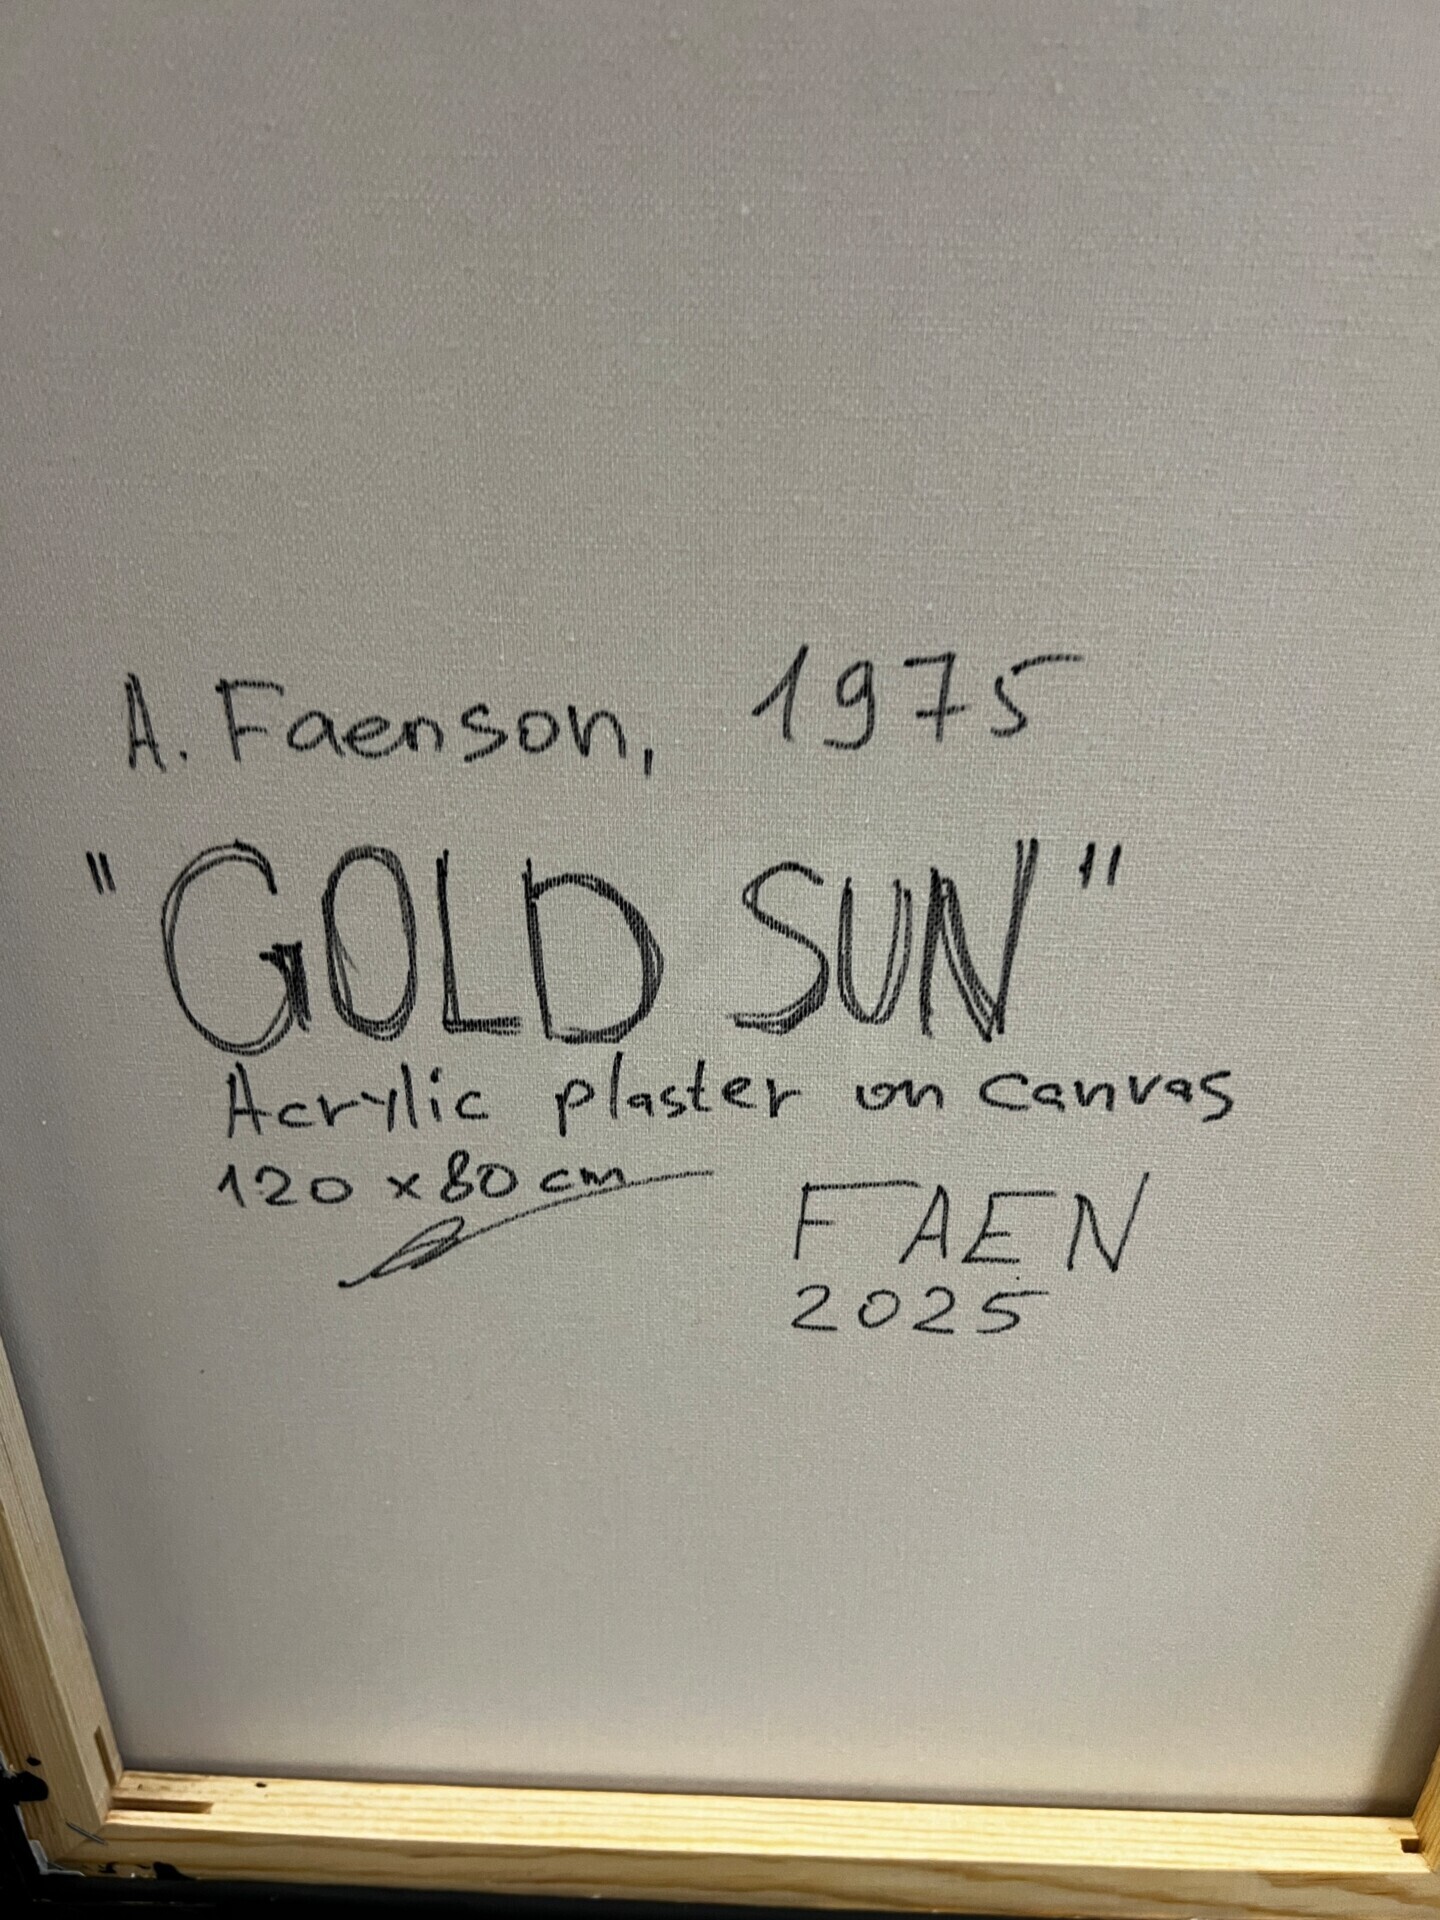 A. Faenson, 1975
"GOLD SUN"
Acrylic plaster on canvas
120 x 80 cm
FAEN
2025